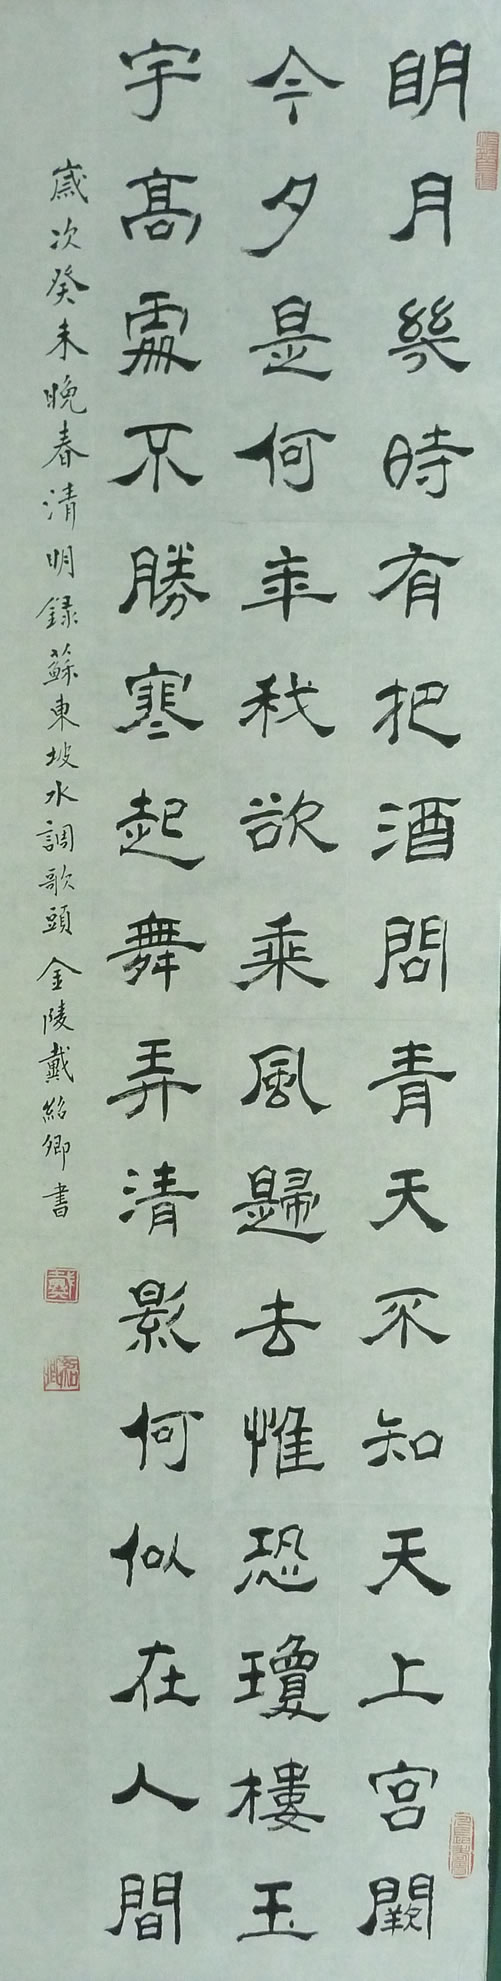 明月幾時有把酒問青天不知天上宮闕
今夕是何年我欲乘風歸去惟恐瓊樓玉
宇高處不勝寒起舞弄清影何似在人間
歲次癸未晚春清明録蘇東坡水調歌頭金陵戴紹卿書